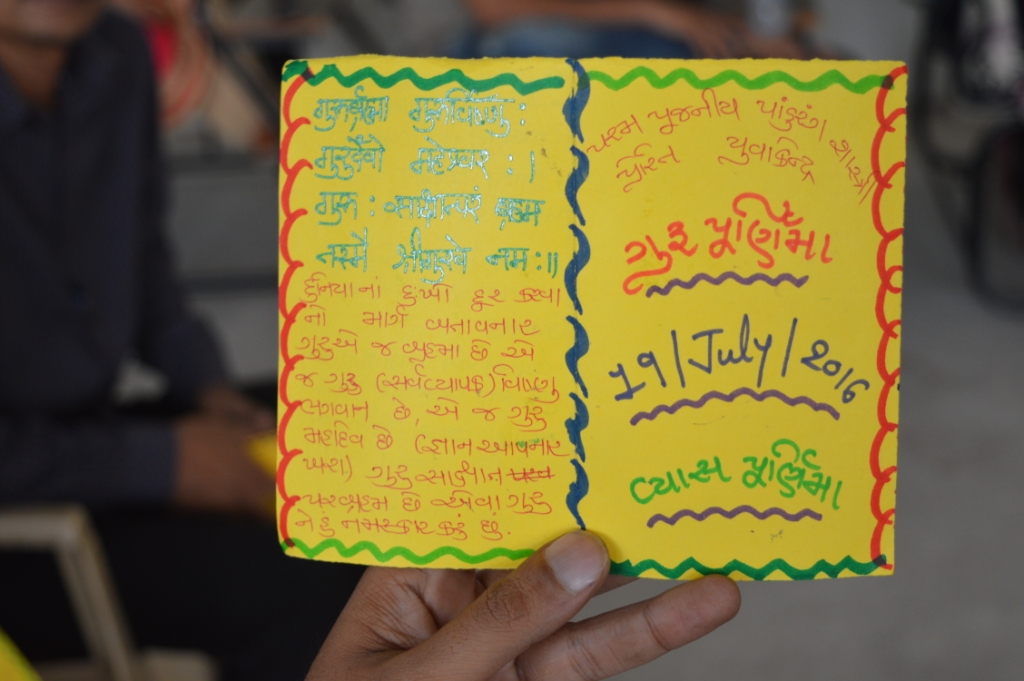 गुरुर्ब्रह्मा गुरुर्विष्णु :
गुरुर्देवो महेश्वर : ।
गुरु : साक्षात्परं ब्रह्म
तस्मै श्रीगुरुवे नम : ॥
દુનિયાનાં દુઃખો દૂર કરવા
નો માર્ગ બતાવનાર
ગુરુએ જ બ્રહ્મા છે એ
જ ગુરુ (સર્વવ્યાપક) વિષ્ણુ
ભગવાન છે, એ જ ગુરુ
મહાદેવ છે (જ્ઞાન આપનાર
ખરા) ગુરુ સાક્ષાત
પરબ્રહ્મ છે એવા ગુરુ
ને હું નમસ્કાર કરું છું.
પરમ પૂજનીય પાંડુરંગ શાસ્ત્રી
પ્રેરિત યુવાકેન્દ્ર
ગુરૂ પૂર્ણિમા
19/July/2016
વ્યાસ પૂર્ણિમા